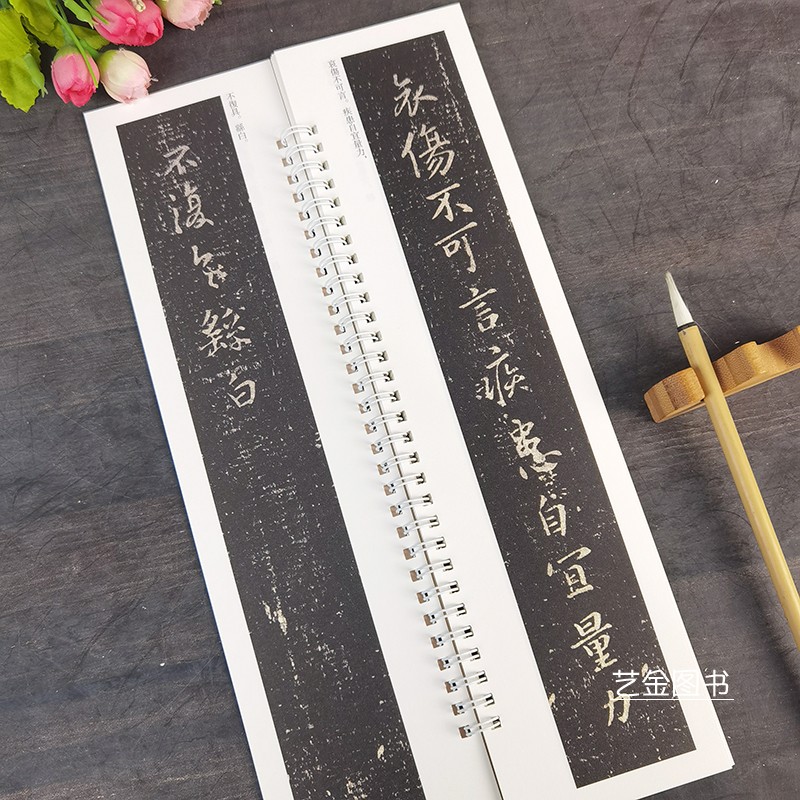 哀傷不可言疾患自宜量力
哀傷不可言。疾患自宜量力。
不復具。繇白。
不復具繇白
艺金图书